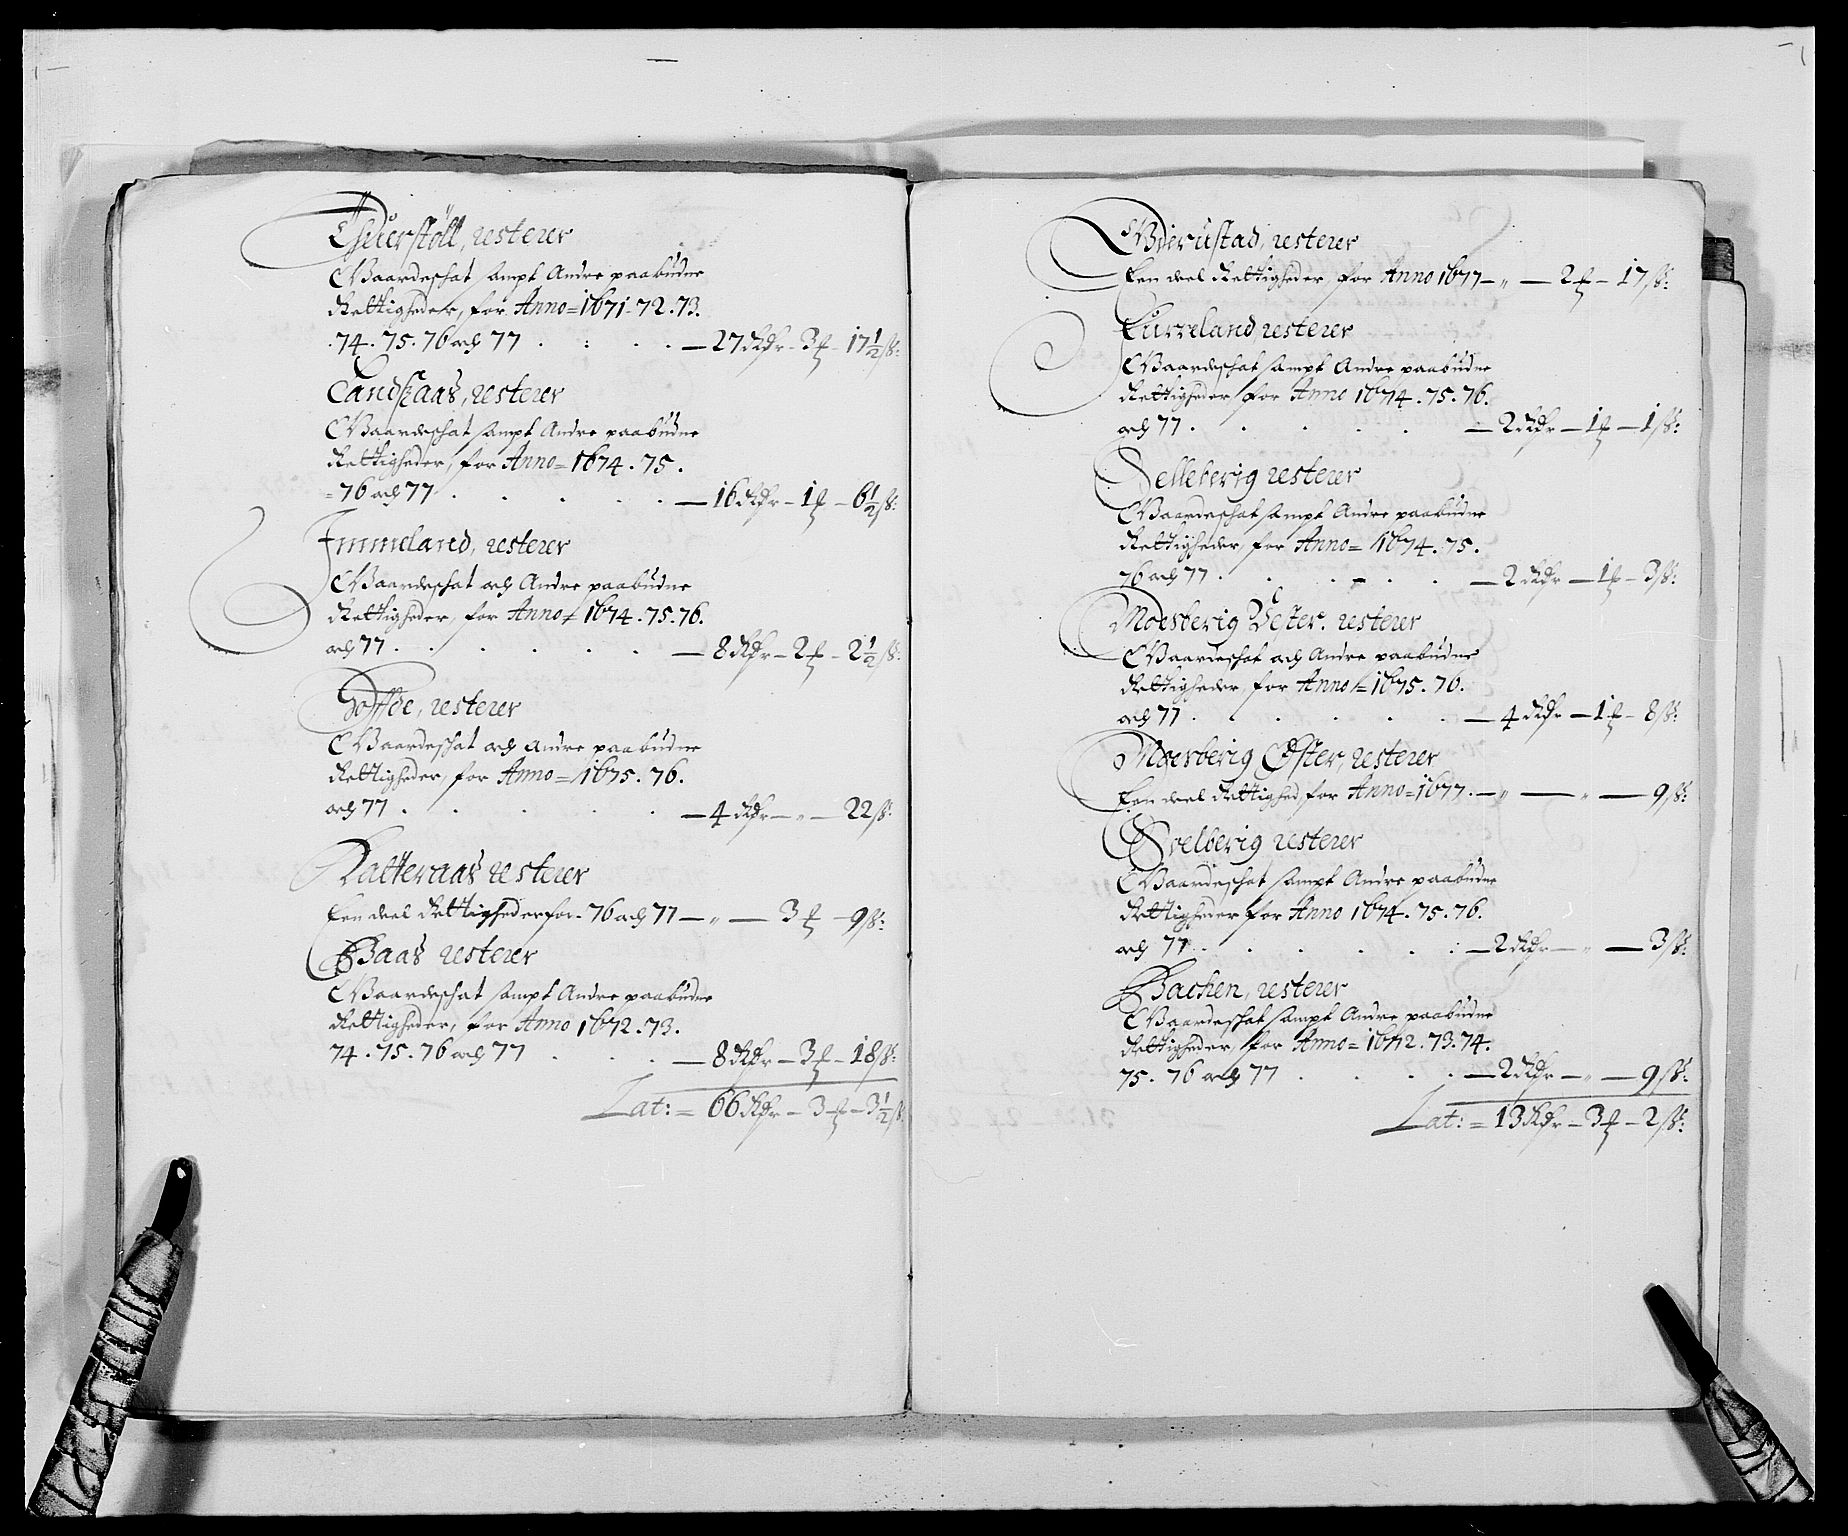 Tsuerstöll, resterer
Gaardeschat sampt Andre paabudne
Rettigheder, for Anno=1671.72.73.
.74.75.76 och 77 . : . . — 27 Rdr – 3 ₰ – 17½ sk:
Landskaas, resterer
Gaardeschat sampt Andre paabudne
Rettigheder, for Anno=1674.75.
=76 och 77 . . . . . — 16 Rdr – 1 ₰ – 6½ sk:
Immeland, resterer
Gaardeschat och Andre paabudne
Rettigheder, for Anno=1674.75.76.
och 77 . . . . . . — 8 Rdr – 2 ₰ – 2½ sk:
Hoffde, resterer
Gaardeschat och Andre paabudne
Rettigheder, for Anno=1675.76.
och 77 . . . . . — 4 Rdr — „ — 22 sk:
Ratteraas resterer
Een deel Rettigheder for. 76 och 77 — „ — 3 ₰ – 9 sk:
Baas resterer
Gaardeschat sampt Andre paabudne
Rettigheder, for Anno 1672.73.
74.75.76 och 77 . . . — 8 Rdr – 3 ₰ – 18 sk:
Lat: = 66 Rdr – 3 ₰ – 3½ sk
Een deel Rettigheder, for Anno 1677 — „ — 2 ₰ – 17 sk:
Lurreland, resterer
Gaardeschat sampt Andre paabudne
Rettigheder, for Anno 1674.75.76.
och 77 . . . . . — 2 Rdr – 1 ₰ – 1 sk:
Selleberig resterer
Gaardeschat sampt Andre paabudne
Rettigheder, for Anno=1674.75.
76 och 77 . . . . . — 2 Rdr – 1 ₰ – 3 sk:
Moesberig Vester. resterer
Gaardeschat och Andre paabudne
Rettigheder, for Anno=1675.76.
och 77 . . . . . . — 4 Rdr – 1 ₰ – 8 sk:
Moesberig Öster, resterer
Een deel Rettighed, for Anno=1677. — „ — „ — 9 sk:
Svelberig resterer
Gaardeschat sampt Andre paabudne
Rettigheder for Anno 1674.75.76.
och 77 . . . . . : — 2 Rdr — „ — 3 sk:
Bachen, resterer
Gaardeschat sampt Andre paabudne
Rettigheder, for Anno=1672.73.74.
75.76 och 77 . . . . — 2 Rdr — „ — 9 sk:
Lat: = 13 Rdr – 3 ₰ – 2 sk: